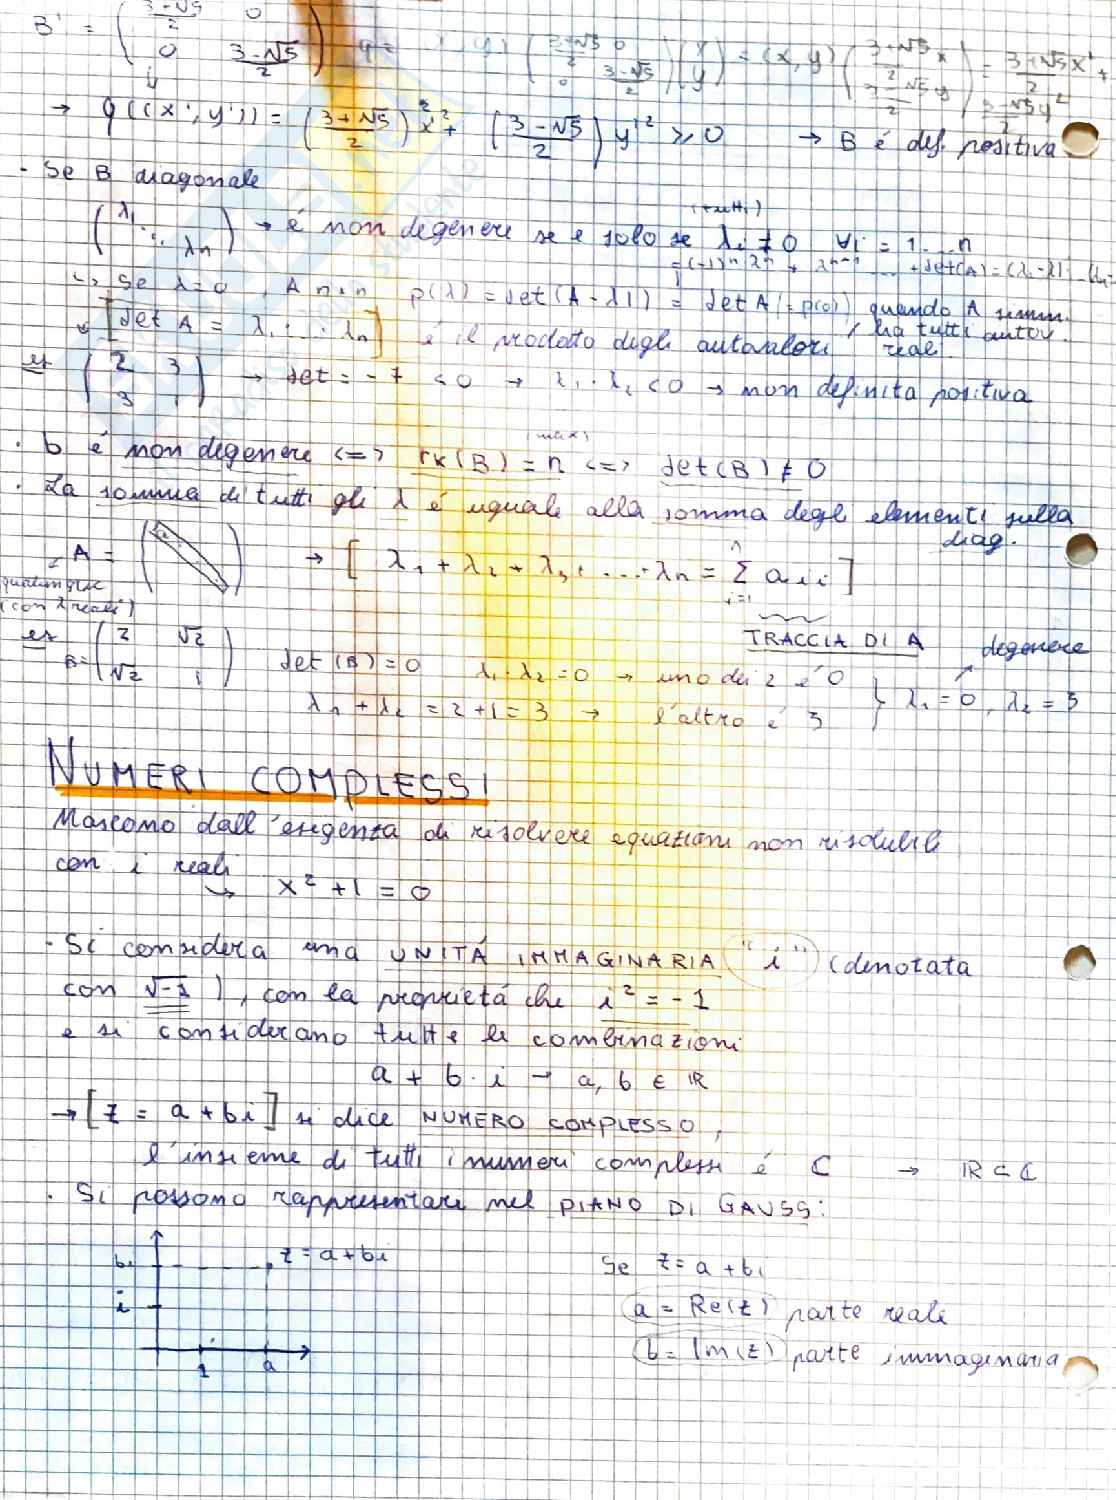 B' = ( 3-√5/2 0
0 3-√5/2 ) q = (x, y) ( 3+√5/2 0
0 3-√5/2 ) (x
y) = (x, y) ( 3+√5/2 x
3-√5/2 y ) = 3+√5/2 x² +
3-√5/2 y²
→ q((x', y')) = ( 3+√5/2 ) x'² + ( 3-√5/2 ) y'² ⩾ 0 → B é def. positiva
· Se B diagonale
(tutti)
( λ₁ ... λn ) → é non degenere se e solo se λi ≠ 0 ∀i = 1...n
= (-1)ⁿ λⁿ + λⁿ⁻¹ ... + det(A) = (λ₁-λ)
↳ Se λ=0, A n×n p(λ) = det(A-λI) = det A (= p(0)) quando A simm.
[det A = λ₁ · ... · λn] e il prodotto degli autovalori, ha tutti autov. reali.
es ( 2 3
3 1 ) → det = -7 < 0 → λ₁ · λ₂ < 0 → non definita positiva
(max)
· b é non degenere <=> rk(B) = n <=> det(B) ≠ 0
· La somma di tutti gli λ é uguale alla somma degli elementi sulla
diag.
A = ( ) → [ λ₁ + λ₂ + λ₃ + ... + λn = Σ aii ]
n
i=1
qualunque
(con λ reali)
TRACCIA DI A
degenere
es B = ( 2 √2
√2 1 ) det(B) = 0 λ₁ · λ₂ = 0 → uno dei 2 é 0 } λ₁ = 0, λ₂ = 3
λ₁ + λ₂ = 2+1 = 3 → l'altro é 3
NUMERI COMPLESSI
Nascono dall'esigenza di risolvere equazioni non risolubili
con i reali
↳ x² + 1 = 0
· Si considera una UNITÁ IMMAGINARIA "i" (denotata
con √-1 ), con la proprietá che i² = -1
e si considerano tutte le combinazioni
a + b · i → a, b ∈ ℝ
→ [z = a + bi] si dice NUMERO COMPLESSO,
l'insieme di tutti i numeri complessi é ℂ → ℝ ⊂ ℂ
· Si possono rappresentare nel PIANO DI GAUSS:
bi z = a + bi
i
1 a
Se z = a + bi
a = Re(z) parte reale
b = Im(z) parte immaginaria